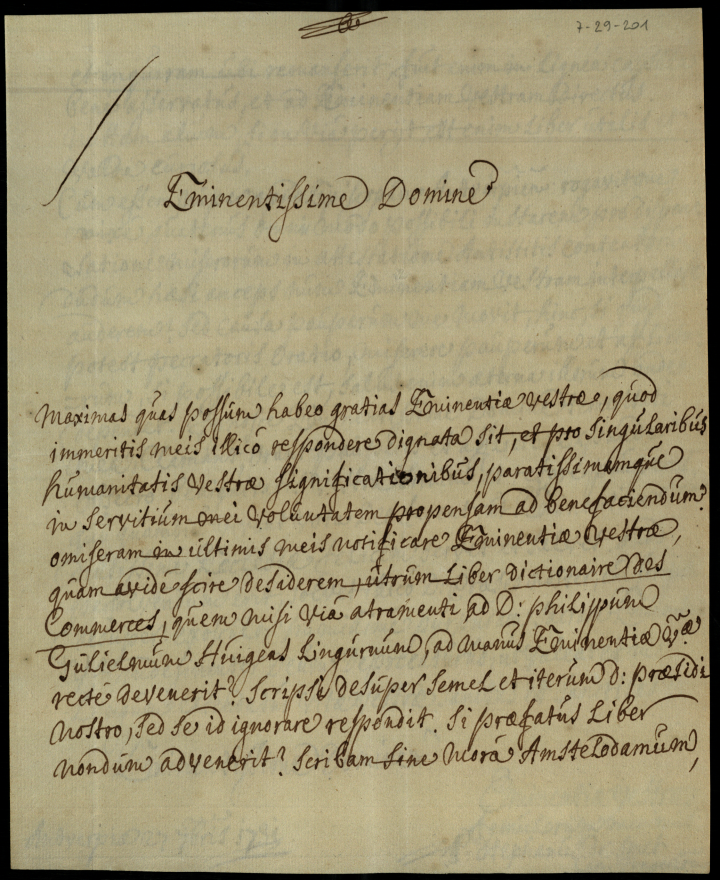 7-29-201
Eminentissime Domine
Maximas quas possum habeo gratias Eminentiæ vestræ, quod
immeritis meis illicò respondere dignata sit, et pro singularibus
humanitatis vestræ significationibus, paratissimamque
in servitium mei voluntatem propensam ad benefaciendum.
omiseram in ultimis meis notificare Eminentiæ vestræ,
quam avidè scire desiderem, utrum Liber dictionaire des
Commerces, quem misi viâ atramenti ad D: philippum
Gulielmum Huigens Lingurnum, ad manus Eminentiæ Væ
rectè devenerit? scripsi desuper semel et iterum d: præsidi
nostro, sed se id ignorare respondit. si præfatus Liber
nondum advenerit? scribam sine morâ Amstelodamum,